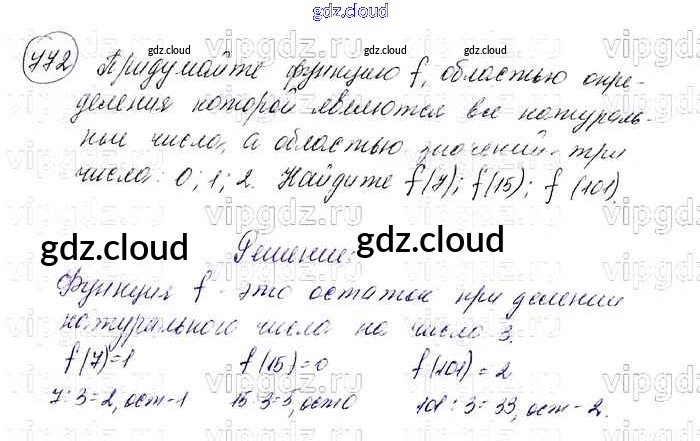 gdz.cloud
772 Придумайте функцию f, областью опре-
деления которой являются все натураль-
ные числа, а областью значений - три
числа: 0; 1; 2. Найдите f(7); f(15); f(101).
gdz.cloud gdz.cloud
Решение:
Функция f - это остаток при делении
натурального числа на число 3.
f(7)=1 f(15)=0 f(101)=2
7:3=2, ост-1 15:3=5, ост 0 101:3=33, ост-2.